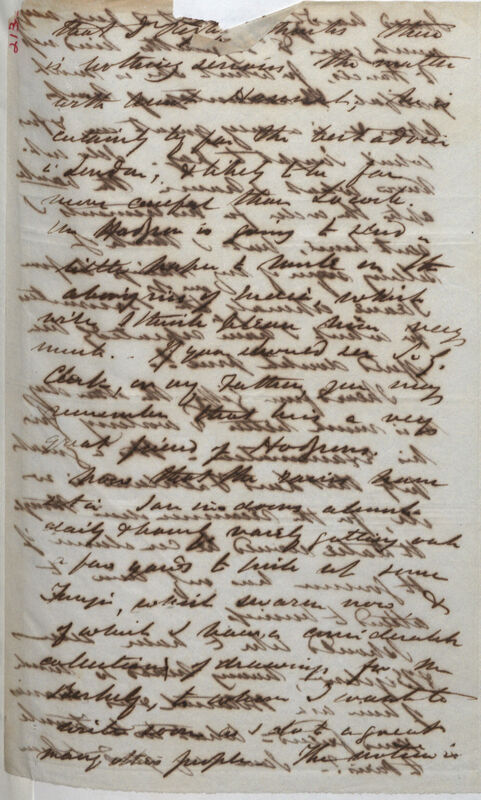 213
that Dr Taylor thinks there
is nothing serious the matter
with Aunt Harriet; he is
certainly by far the best advice
in London, & likely to be far
more careful than Locock.
Mr Hodgson is going to send a
little paper to uncle on the
aborigines of India, which
will I think please him very
much. If you should see L. G.
Clark, or my Father, you may
remember that he is a very
great friend of Hodgsons.
now that the rains have
set in I am indoors almost
daily & hardly rarely getting out
a few yards to pick up some
Fungi, which swarm now &
of which I have a considerable
collection of drawings for Mr
Berkeley to whom I want to
write soon as I do to a great
many other people. The motion is